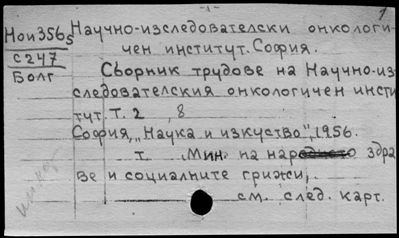 -1-
1
Нои356₅ Научно-изследователски онкологи-
чен институт. София.
С247
Болг Сборник трудове на Научно-из-
следователския онкологичен инсти
тут. Т. 2 , 8
София, "Наука и изкуство", 1956.
т. Мин. на народнато здра
ве и социалните грижи,
см. след. карт.